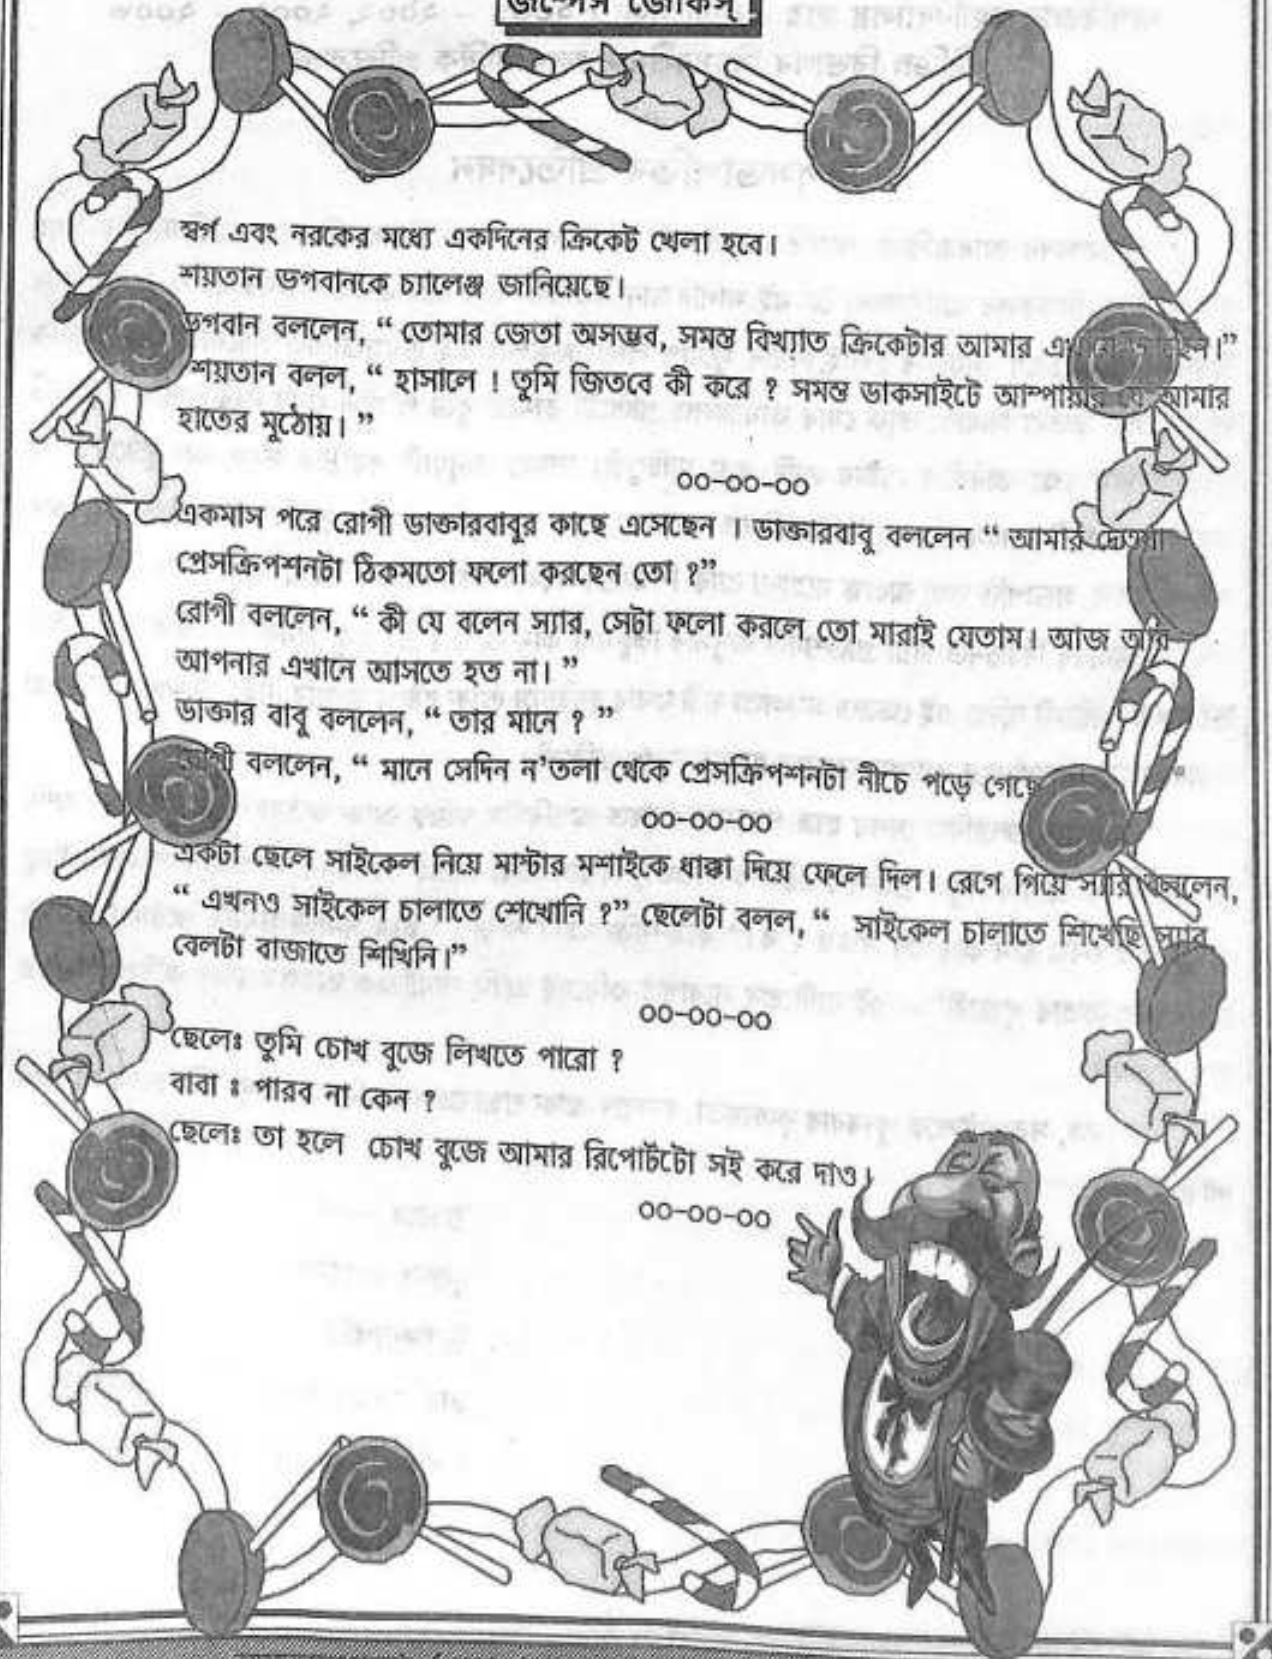 জোকস্
স্বর্গ এবং নরকের মধ্যে একদিনের ক্রিকেট খেলা হবে।
শয়তান ভগবানকে চ্যালেঞ্জ জানিয়েছে।
ভগবান বললেন, “ তোমার জেতা অসম্ভব, সমস্ত বিখ্যাত ক্রিকেটার আমার
শয়তান বলল, “ হাসালে ! তুমি জিতবে কী করে ? সমস্ত ডাকসাইটে আম্পায়ার যে আমার
হাতের মুঠোয়। ”
০০-০০-০০
একমাস পরে রোগী ডাক্তারবাবুর কাছে এসেছেন । ডাক্তারবাবু বললেন “ আমার দেওয়া
প্রেসক্রিপশনটা ঠিকমতো ফলো করছেন তো ?”
রোগী বললেন, “ কী যে বলেন স্যার, সেটা ফলো করলে তো মারাই যেতাম। আজ আর
আপনার এখানে আসতে হত না। ”
ডাক্তার বাবু বললেন, “ তার মানে ? ”
রোগী বললেন, “ মানে সেদিন ন'তলা থেকে প্রেসক্রিপশনটা নীচে পড়ে গেছে
০০-০০-০০
একটা ছেলে সাইকেল নিয়ে মাস্টার মশাইকে ধাক্কা দিয়ে ফেলে দিল। রেগে গিয়ে স্যার বললেন,
“ এখনও সাইকেল চালাতে শেখোনি ?” ছেলেটা বলল, “ সাইকেল চালাতে শিখেছি স্যার,
বেলটা বাজাতে শিখিনি।”
০০-০০-০০
ছেলেঃ তুমি চোখ বুজে লিখতে পারো ?
বাবা ঃ পারব না কেন ?
ছেলেঃ তা হলে চোখ বুজে আমার রিপোর্টটো সই করে দাও।
০০-০০-০০